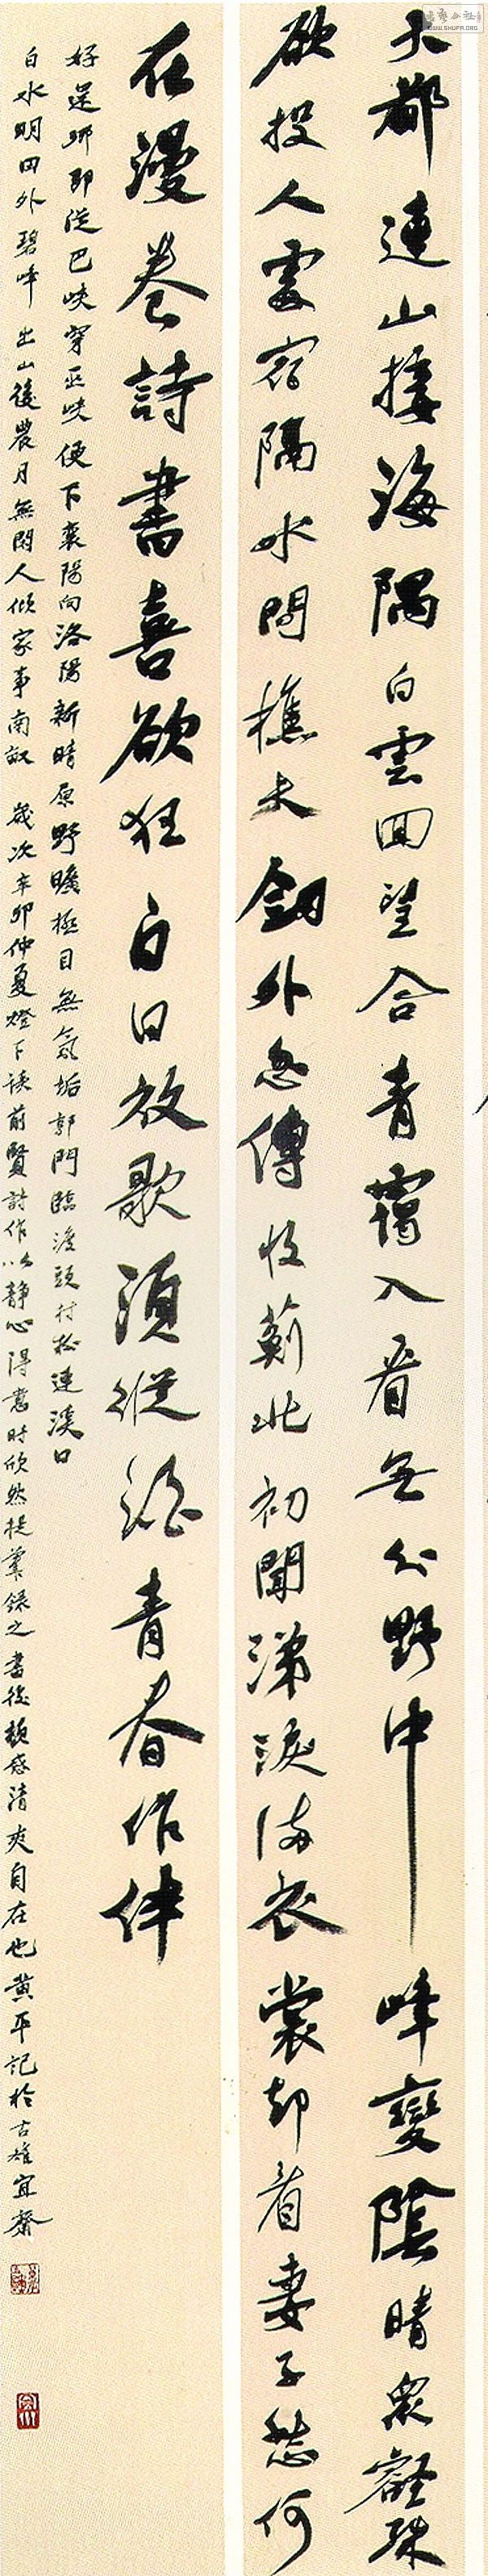 大都連山接海隅白雲回望合青靄入看無分野中峰變陰晴衆壑殊
欲投人處宿隔水問樵夫劍外忽傳收薊北初聞涕淚滿衣裳却看妻子愁何
在漫卷詩書喜欲狂白日放歌須縱酒青春作伴
好還鄉即從巴峽穿巫峽便下襄陽向洛陽新晴原野曠極目無氛垢郭門臨渡頭村樹連溪口
白水明田外碧峰出山後農月無閑人傾家事南畝 歲次辛卯仲夏燈下讀前賢詩作以靜心得意時欣然提筆錄之書後頗感清爽自在也黄平記於古雄宜齋
WWW.SHUFA.ORG